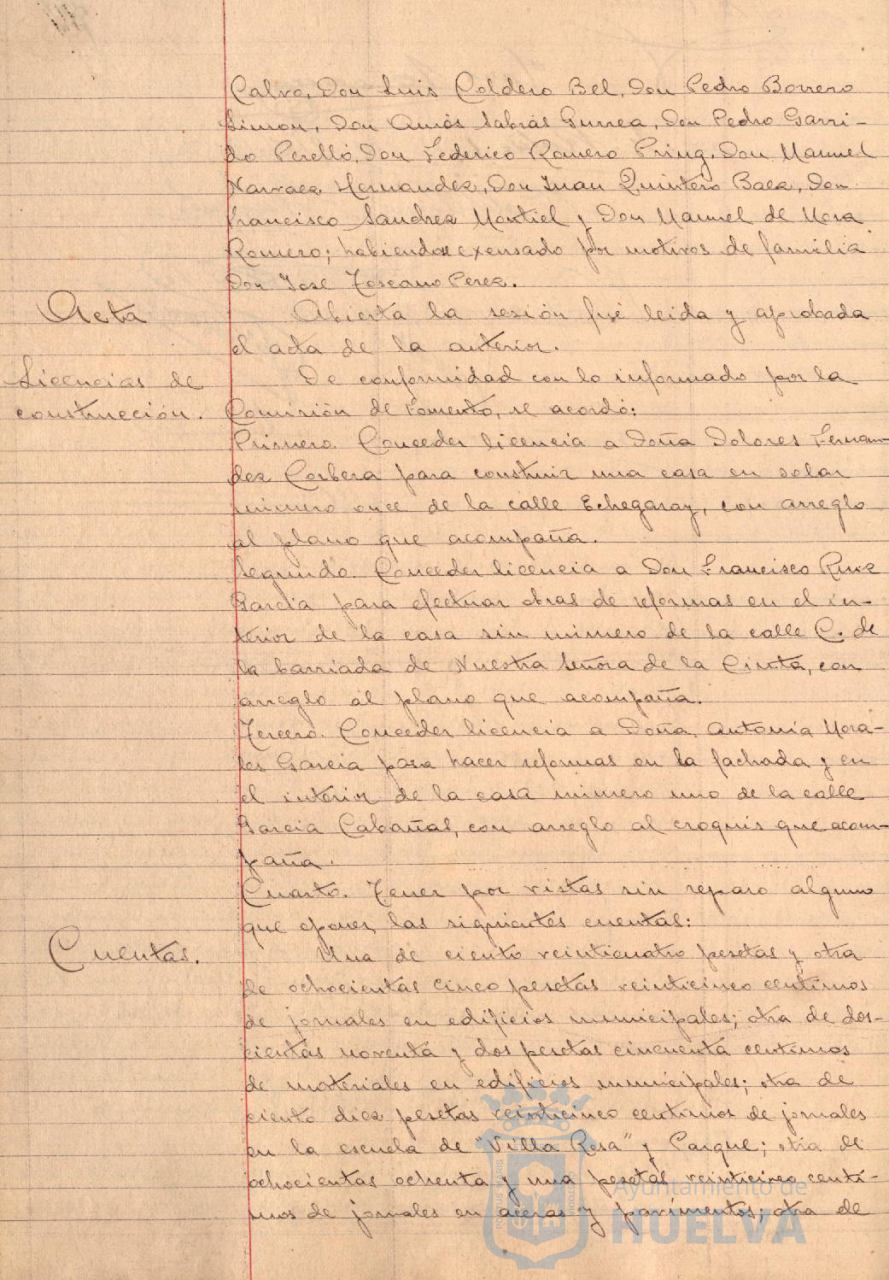 Calvo, Don Luis Coldero Bel, Don Pedro Borrero
Simon, Don Amós Sabrás Gurrea, Don Pedro Garri-
do Perelló, Don Federico Romero Pring, Don Manuel
Narvaez Hernandez, Don Juan Quintero Baez, Don
Francisco Sanchez Montiel y Don Manuel de Mora
Romero; habiendose excusado por motivos de familia
Don Jose Toscano Perez.
Acta
Abierta la sesión fué leida y aprobada
el acta de la anterior.
Licencias de
construcción.
De conformidad con lo informado por la
Comisión de Fomento, se acordó:
Primero. Conceder licencia a Doña Dolores Fernan-
dez Corbera para construir una casa en solar
número once de la calle Echegaray, con arreglo
al plano que acompaña.
Segundo. Conceder licencia a Don Francisco Ruiz
Garcia para efectuar obras de reformas en el in-
terior de la casa sin número de la calle C. de
la barriada de Nuestra Señora de la Cinta, con
arreglo al plano que acompaña.
Tercero. Conceder licencia a Doña Antonia Mora-
les Garcia para hacer reformas en la fachada y en
el interior de la casa número uno de la calle
Garcia Cabañas, con arreglo al croquis que acom-
paña.
Cuarto. Tener por vistas sin reparo alguno
que oponer, las siguientes cuentas:
Cuentas.
Una de ciento veinticuatro pesetas y otra
de ochocientas cinco pesetas veinticinco centimos
de jornales en edificios municipales; otra de dos-
cientas noventa y dos pesetas cincuenta centimos
de materiales en edificios municipales; otra de
ciento diez pesetas veinticinco centimos de jornales
en la escuela de "Villa Rosa" y Parque; otra de
ochocientas ochenta y una pesetas veinticinco centi-
mos de jornales en aceras y pavimentos; otra de
Ayuntamiento de
HUELVA